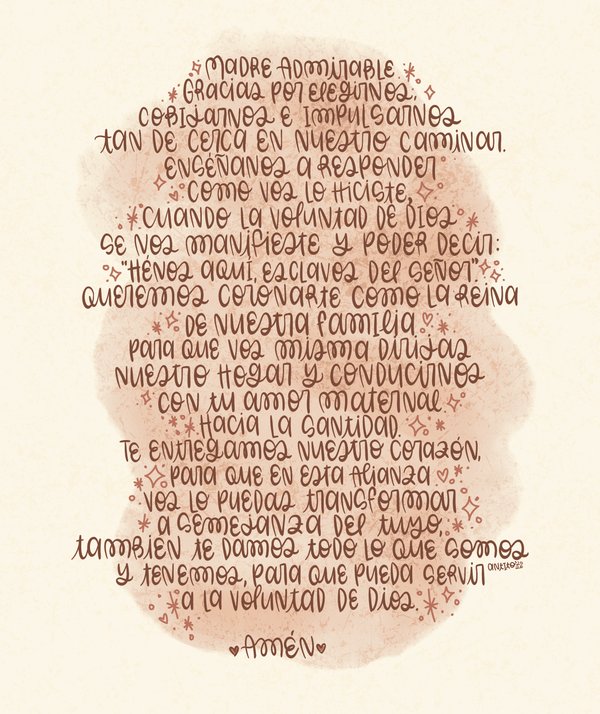 Madre Admirable
Gracias por elegirnos,
cobijarnos e impulsarnos
tan de cerca en nuestro caminar.
Enséñanos a responder
como vos lo hiciste,
cuando la voluntad de Dios
se nos manifieste y poder decir:
"Hénos aquí, esclavos del Señor".
Queremos coronarte como la Reina
de nuestra familia
para que vos misma dirijas
nuestro hogar y conducirnos
con tu amor maternal
hacia la santidad.
Te entregamos nuestro corazón,
para que en esta Alianza
vos lo puedas transformar
a semejanza del tuyo,
también te damos todo lo que somos
y tenemos, para que pueda servir
a la voluntad de Dios.
Amén